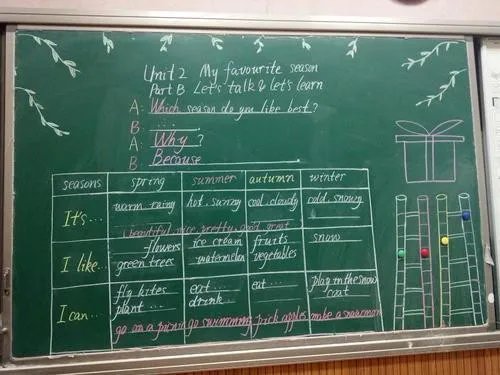 Unit 2 My favourite season
Part B Let's talk & let's learn
A: Which season do you like best?
B: ...
A: Why?
B: Because
seasons spring summer autumn winter
It's... warm rainy hot sunny cool cloudy cold snowy
beautiful nice pretty good great
I like... flowers ice cream fruits snow
green trees watermelon vegetables
I can... fly kites eat... eat... play in the snow
plant... drink...
go on a picnic go swimming pick apples make a snowman